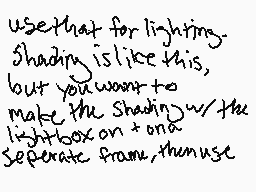 use that for lighting.
Shading is like this,
but you want to
make the shading w/ the
lightbox on + on a
seperate frame, then use